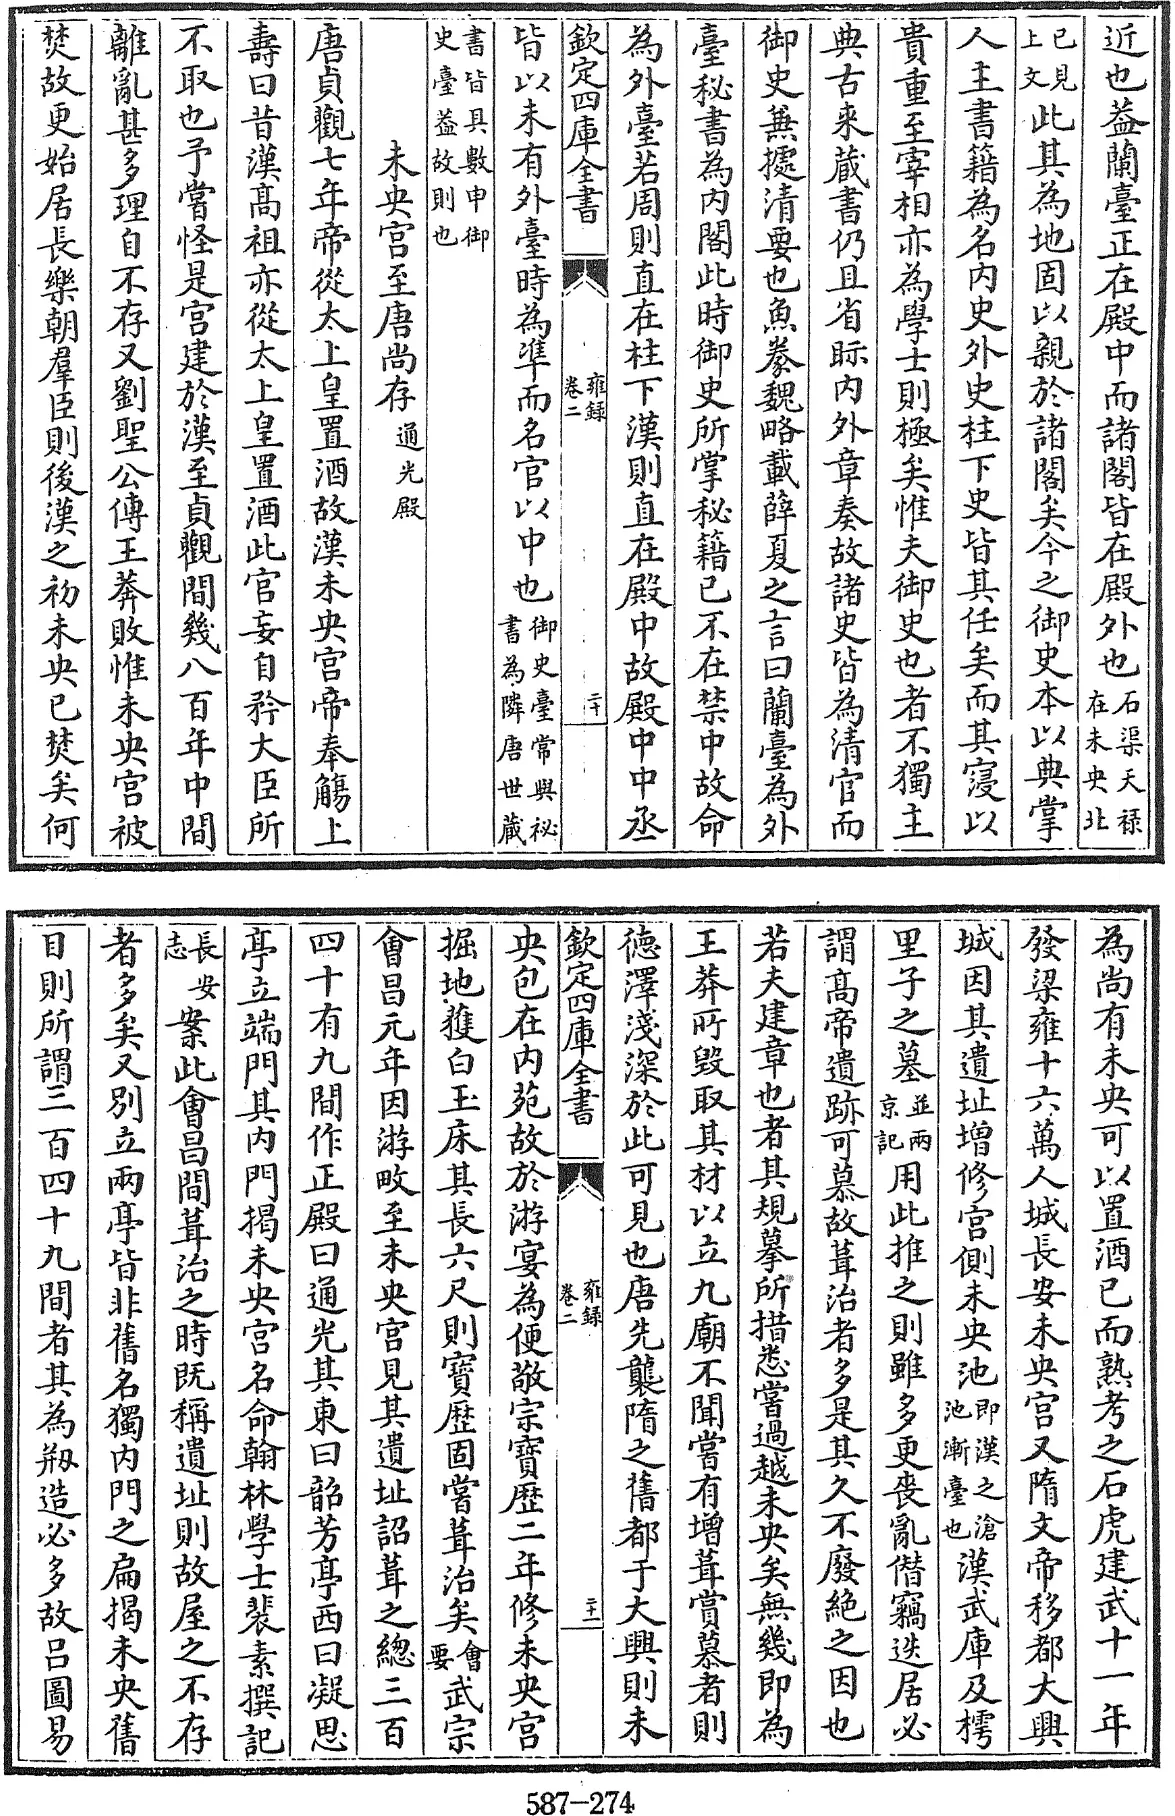 近也葢蘭臺正在殿中而諸閣皆在殿外也石渠天禄在未央北
已見上文此其為地固以親於諸閣矣今之御史本以典掌
人主書籍為名内史外史柱下史皆其任矣而其寖以
貴重至宰相亦為學士則極矣惟夫御史也者不獨主
典古来蔵書仍且省眎内外章奏故諸史皆為清官而
御史兼㩀清要也魚豢魏略載薛夏之言曰蘭臺為外
臺秘書為内閣此時御史所掌秘籍已不在禁中故命
為外臺若周則直在柱下漢則直在殿中故殿中中丞
欽定四庫全書 雍録 卷二 二十
皆以未有外臺時為凖而名官以中也御史臺常與祕書為隣唐世蔵
書皆具數申御史臺葢故則也
未央宫至唐尚存通光殿
唐貞觀七年帝從太上皇置酒故漢未央宫帝奉觴上
壽曰昔漢髙祖亦從太上皇置酒此宫妄自矜大臣所
不取也予嘗怪是宫建於漢至貞觀間幾八百年中間
離亂甚多理自不存又劉聖公傳王莽敗惟未央宫被
焚故更始居長樂朝羣臣則後漢之初未央已焚矣何
為尚有未央可以置酒已而熟考之石虎建武十一年
發梁雍十六萬人城長安未央宫又隋文帝移都大興
城因其遺址増修宫側未央池即漢之滄池漸臺也漢武庫及樗
里子之墓並兩京記用此推之則雖多更喪亂僣竊迭居必
謂髙帝遺跡可慕故葺治者多是其久不廢絶之因也
若夫建章也者其規摹所措悉嘗過越未央矣無幾即為
王莽所毁取其材以立九廟不聞嘗有増葺賞慕者則
徳澤淺深於此可見也唐先襲隋之舊都于大興則未
欽定四庫全書 雍録 卷二 二十一
央包在内苑故於游宴為便敬宗寳歴二年修未央宫
掘地獲白玉床其長六尺則寳歴固嘗葺治矣會要武宗
會昌元年因游畋至未央宫見其遺址詔葺之總三百
四十有九間作正殿曰通光其東曰韶芳亭西曰凝思
亭立端門其内門揭未央宫名命翰林學士裴素撰記
長安志案此會昌間葺治之時既稱遺址則故屋之不存
者多矣又别立兩亭皆非舊名獨内門之扁揭未央舊
目則所謂三百四十九間者其為剏造必多故吕圖易
587-274